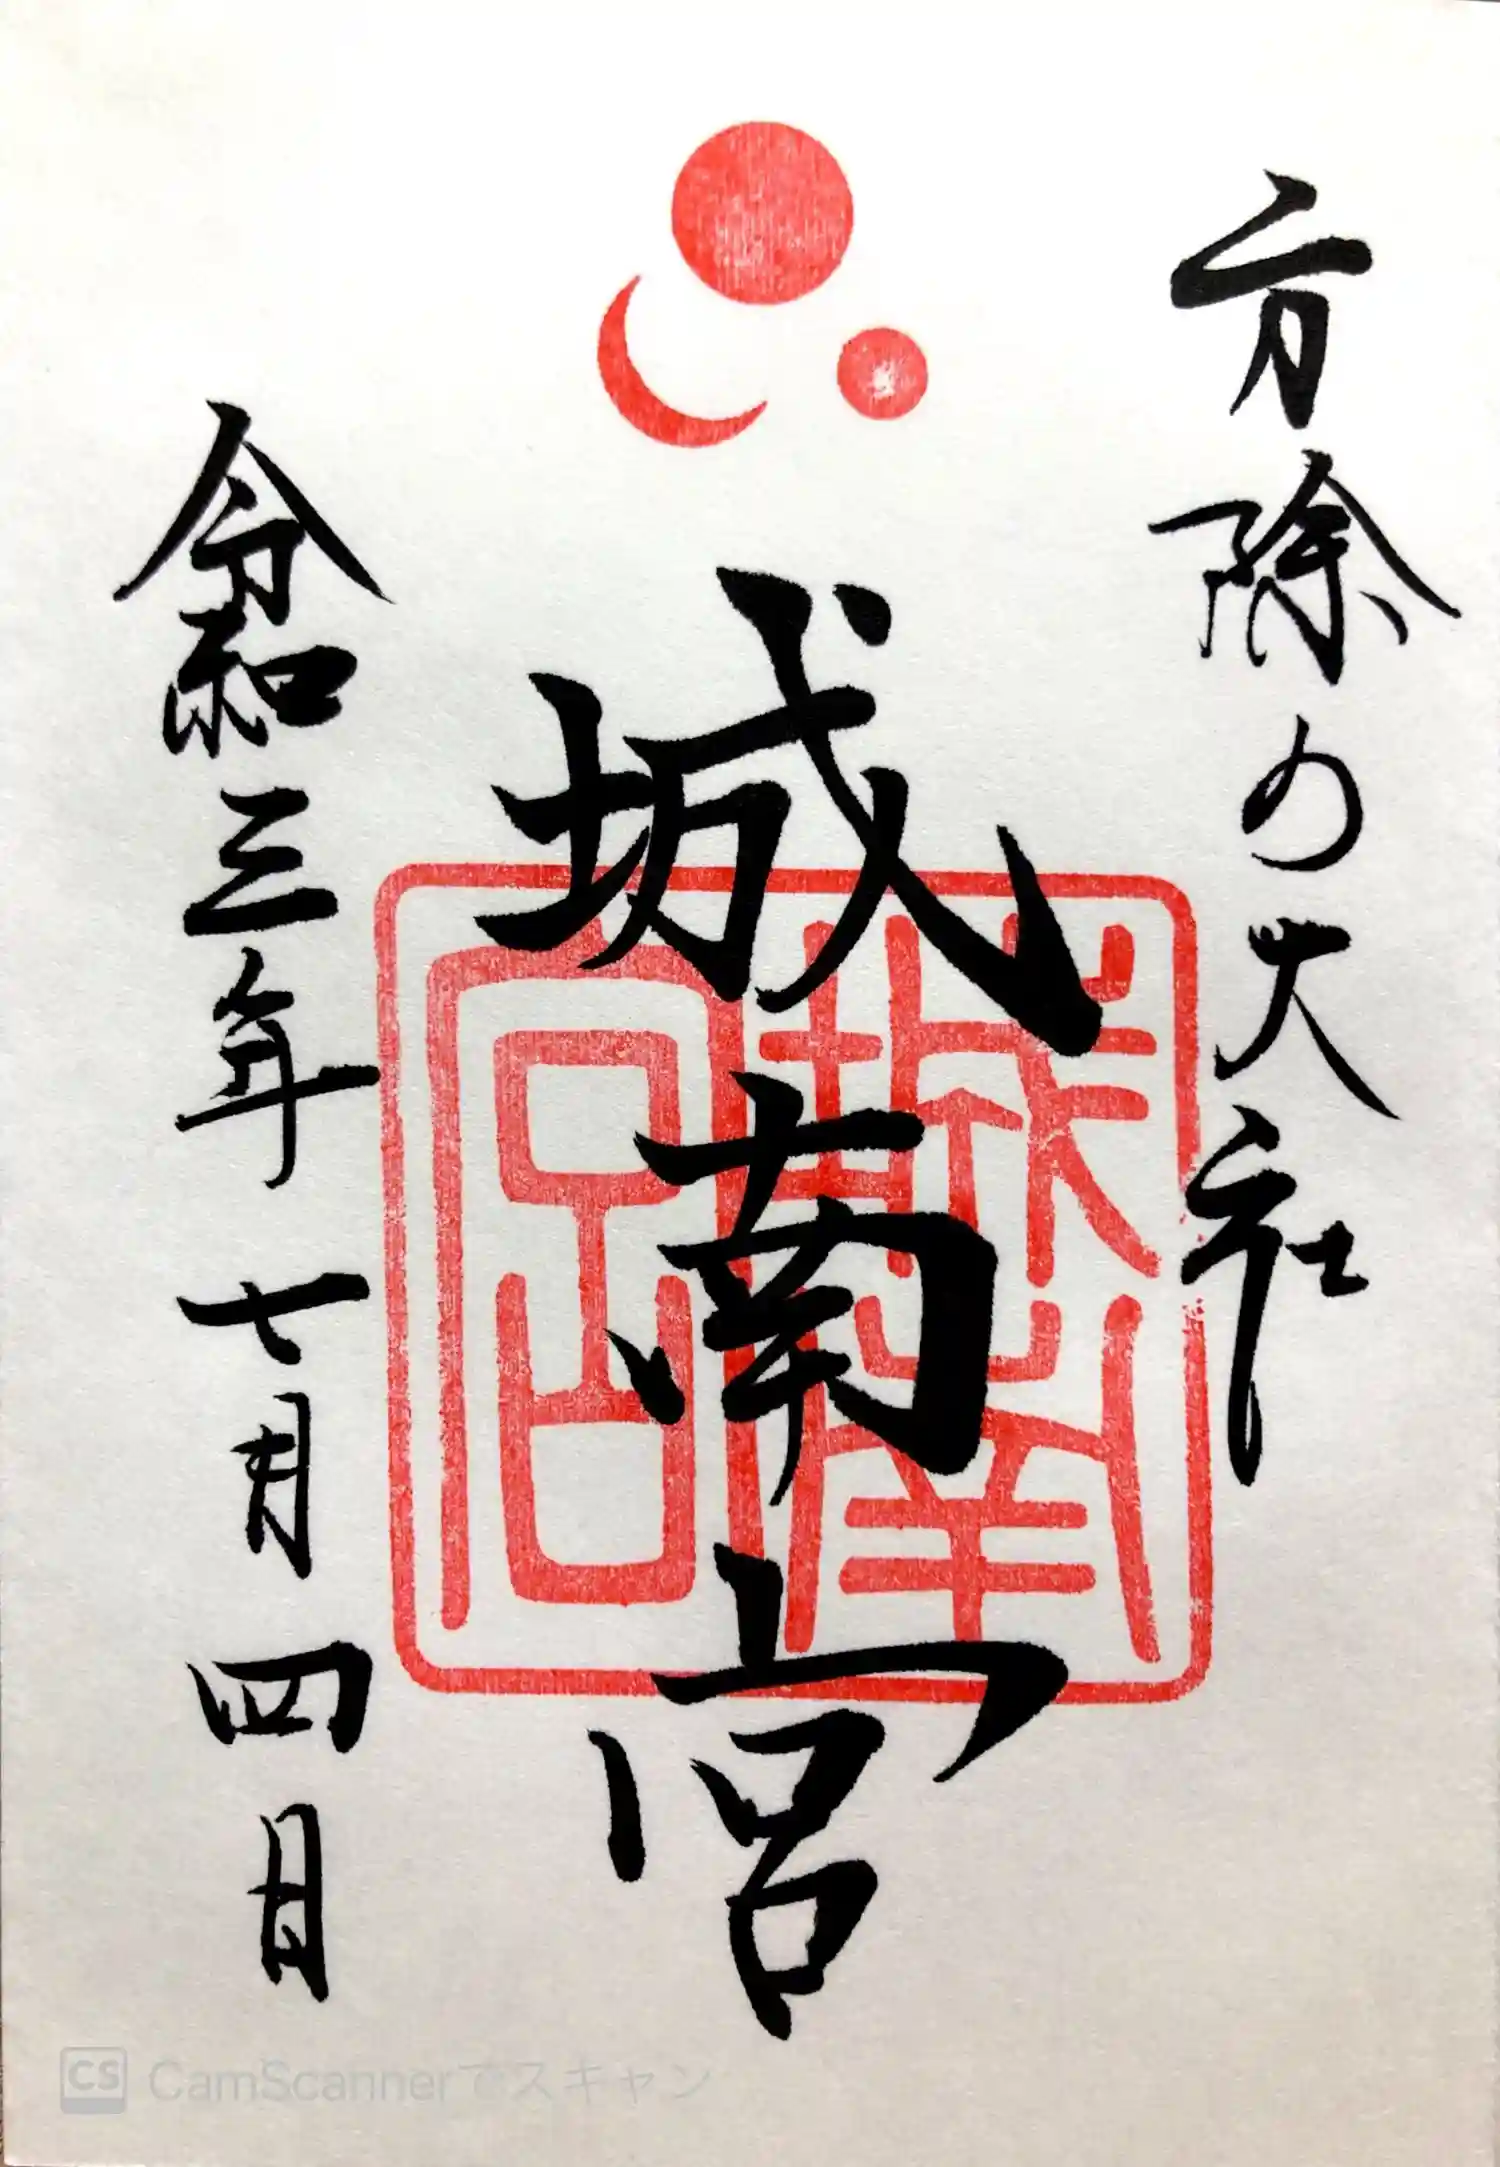 方除の大社
城南宮
城南宮
令和三年七月四日
CS CamScannerでスキャン